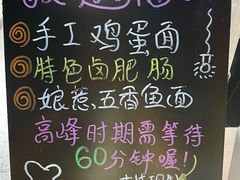 手工鸡蛋面
特色卤肥肠
娘惹五香鱼面
高峰时期需等待
60分钟喔!